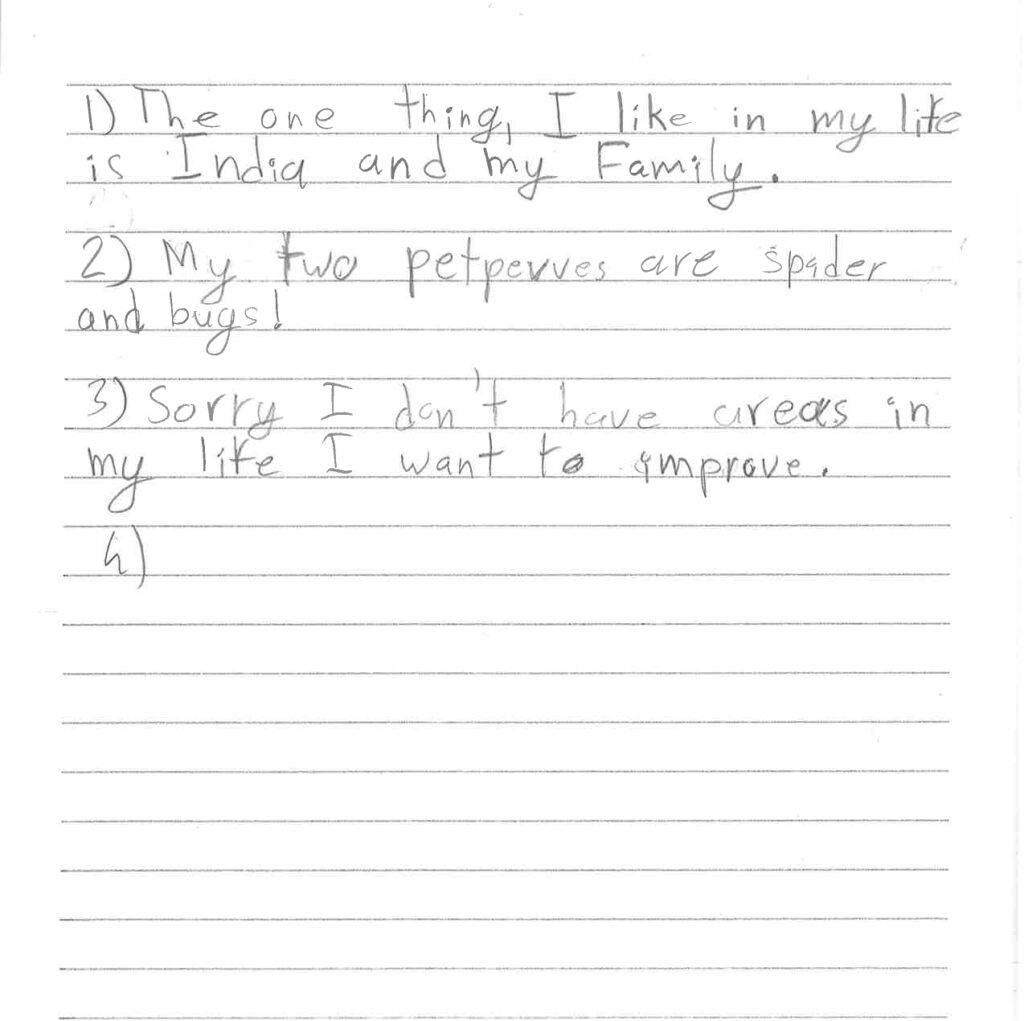 1) The one thing, I like in my life
is India and my Family.
2) My two petpevves are spader
and bugs!
3) Sorry I don't have areas in
my life I want to improve.
4)